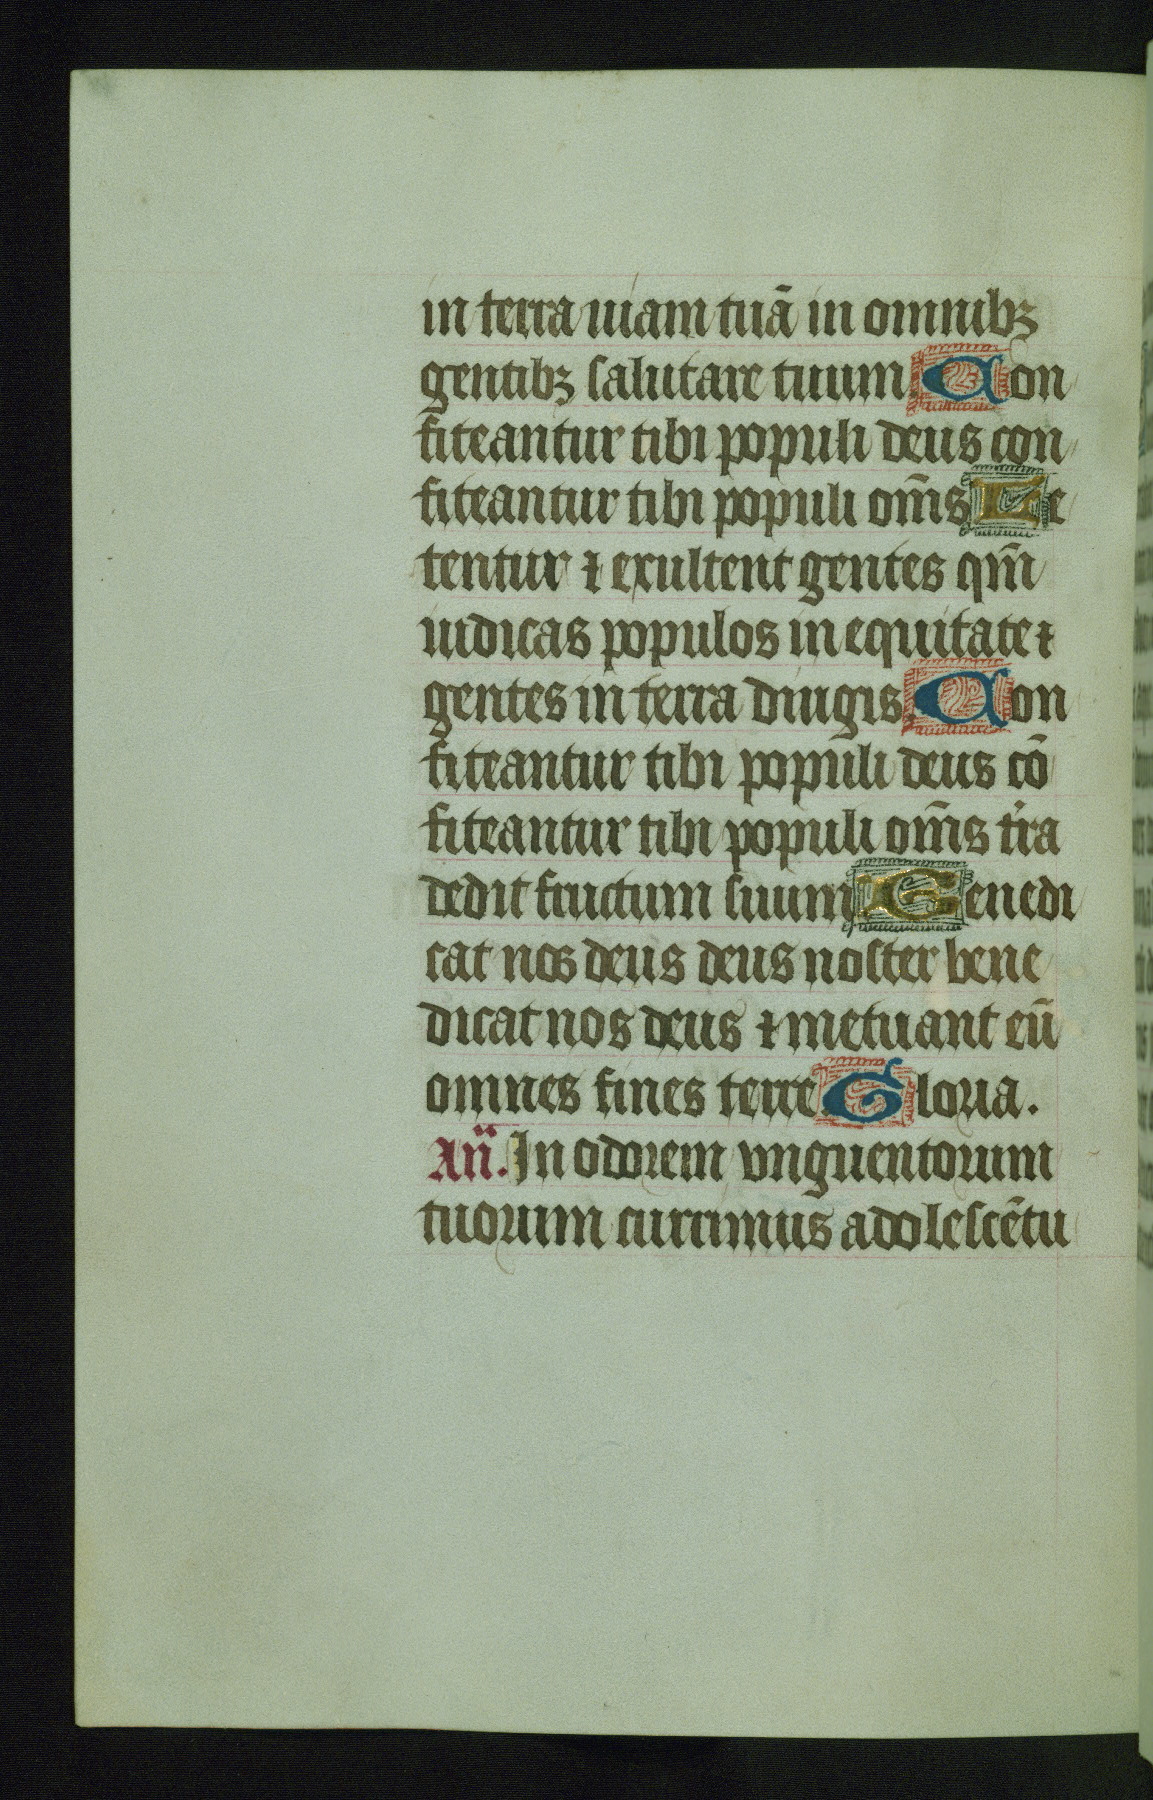 in terra uiam tuā in omnibꝫ
gentibꝫ salutare tuum. Con
fiteantur tibi populi deus con
fiteantur tibi populi om̄s Le
tentur ⁊ exultent gentes qm̄
iudicas populos in equitate ⁊
gentes in terra dirigis. Con
fiteantur tibi populi deus cō
fiteantur tibi populi om̄s t'ra
dedit fructum suum Benedi
cat nos deus deus noster bene
dicat nos deus ⁊ metuant eū
omnes fines terre. Gloria.
An̄. In odorem vnguentorum
tuorum currimus adolescētu